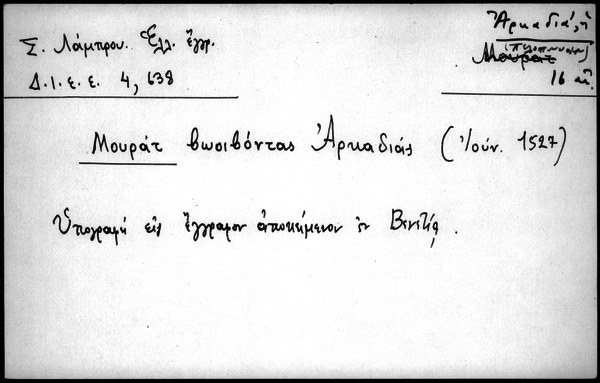 Σ. Λάμπρου. Ἑλλ. ἔγγρ.
Δ.Ι.Ε.Ε. 4, 638
Ἀρκαδιά, ἡ
(Πελοπονν.)
Μουράτ
16 αἰ.
Μουράτ βωοιβόντας Ἀρκαδιάς (Ἰούν. 1527)
Ὑπογραφὴ εἰς ἔγγραφον ἀποκείμενον ἐν Βενετίᾳ.